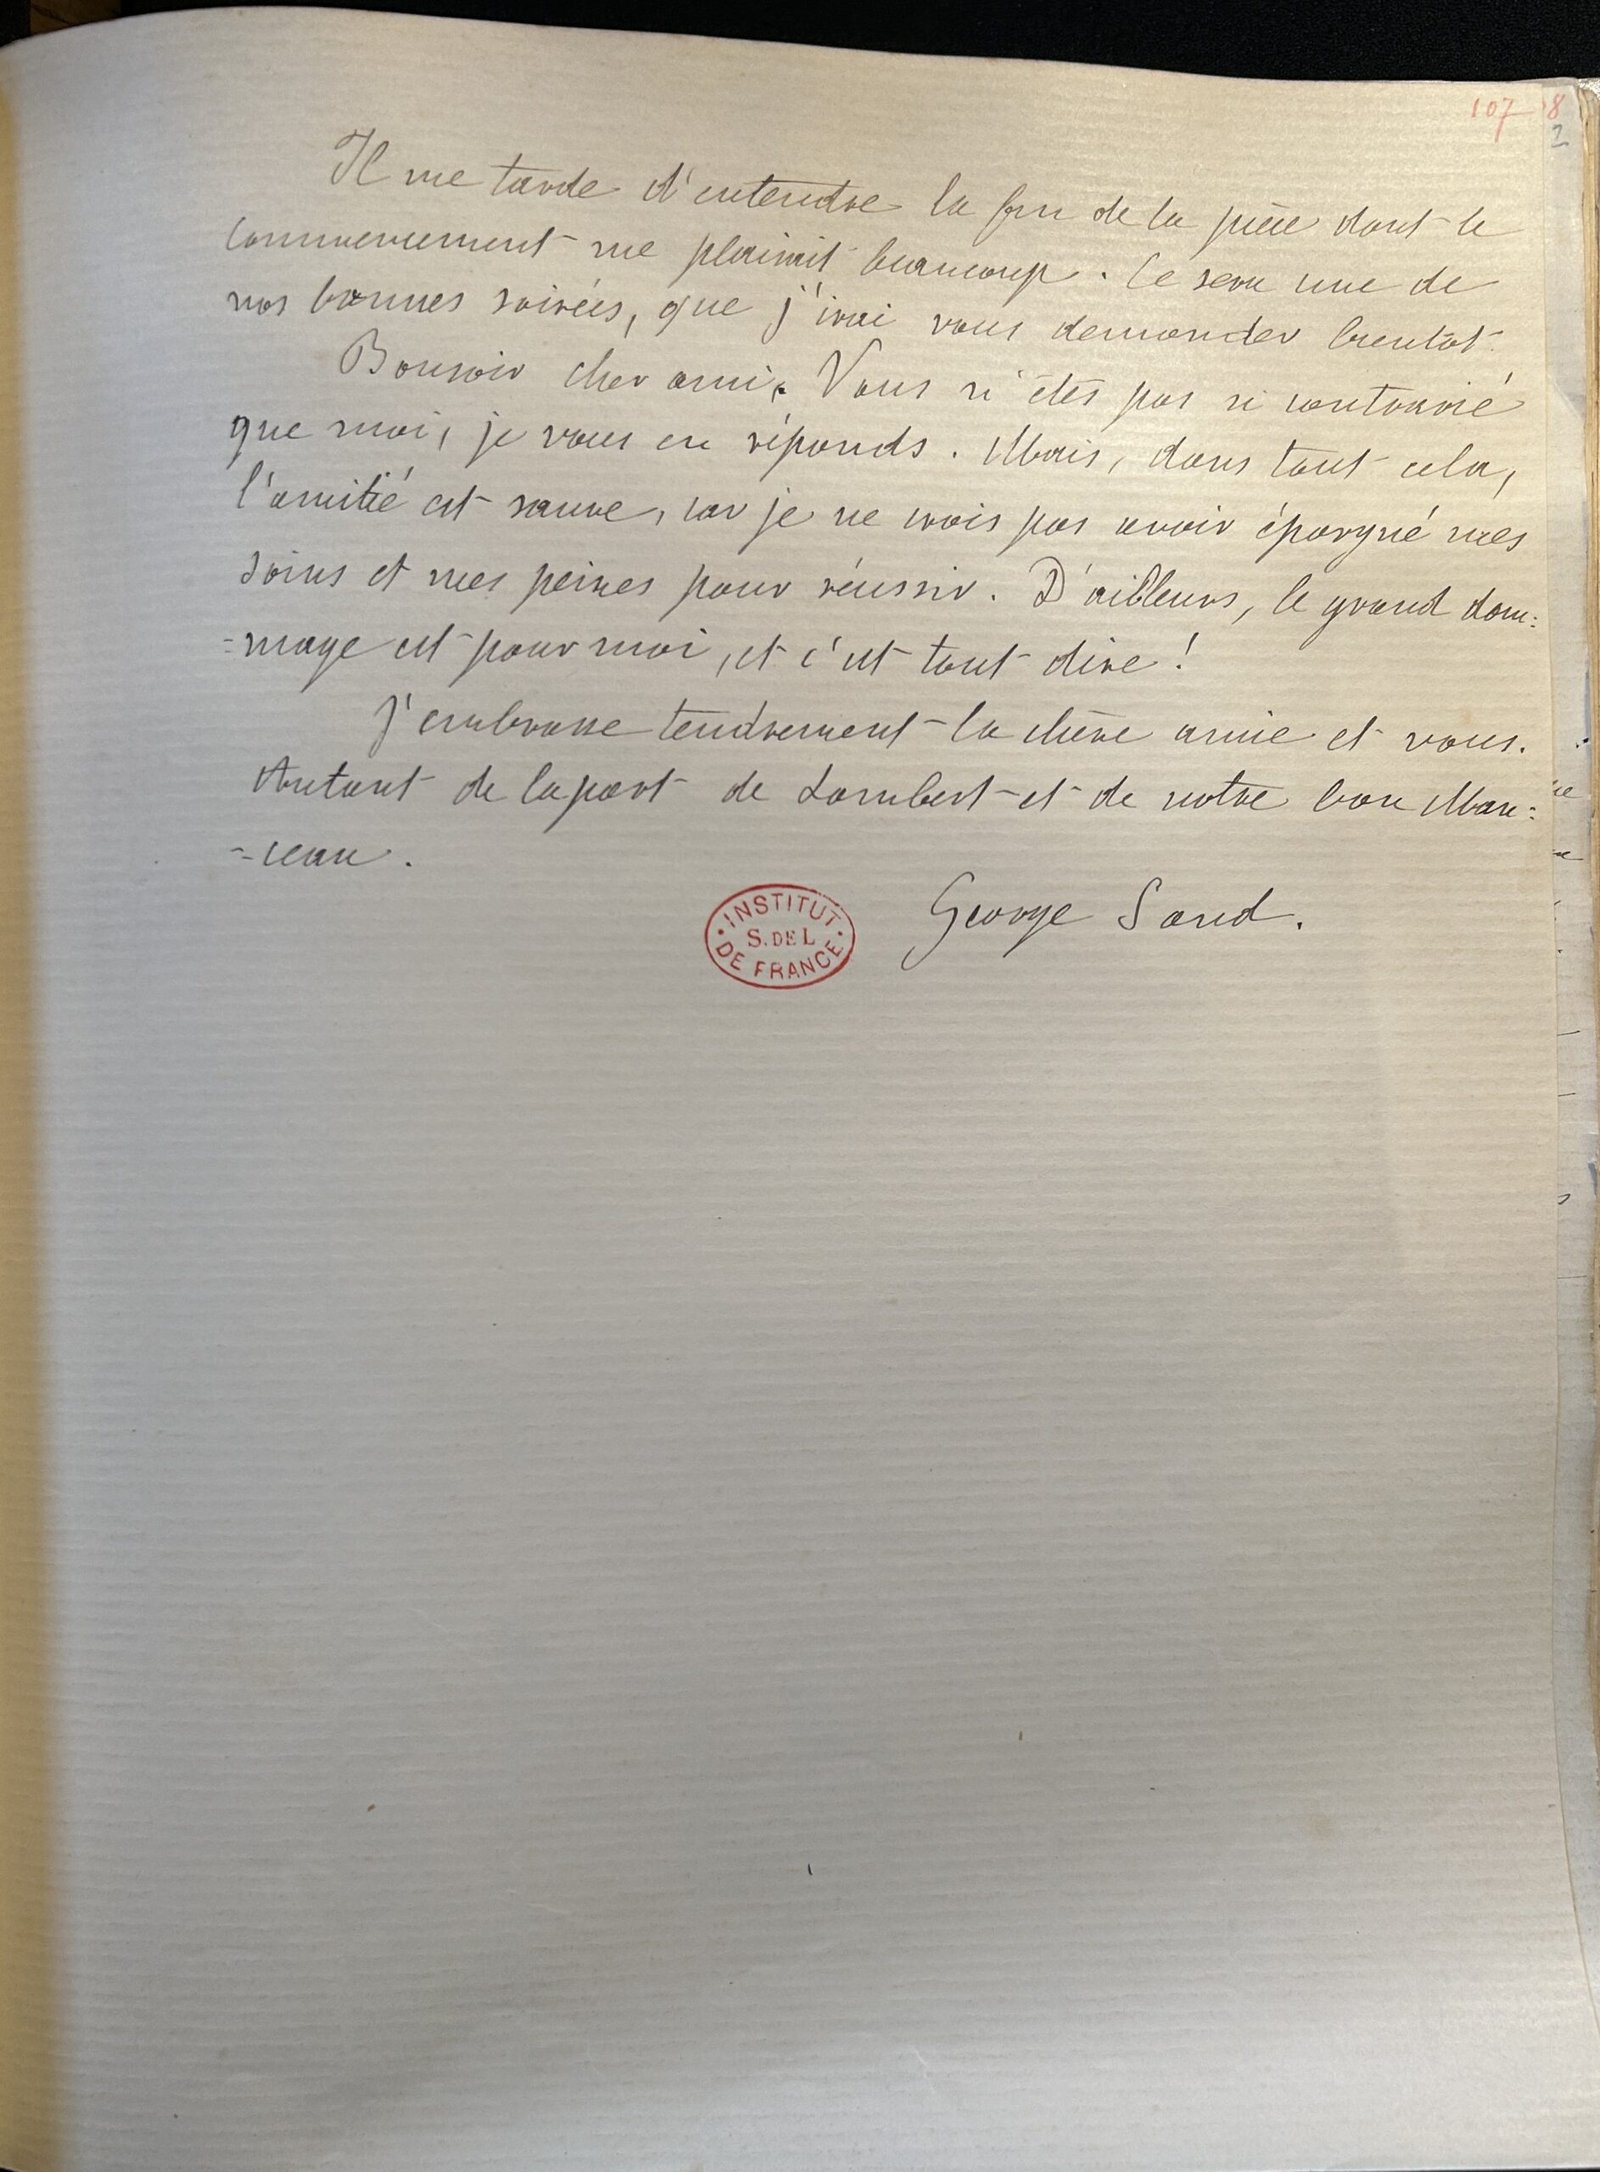 107 8
2
Il me tarde d'entendre la fin de la pièce dont le
commencement me plaisait beaucoup. Ce sera une de
nos bonnes soirées, que j'irai vous demander bientôt.
Bonsoir cher ami. Vous n'êtes pas si contrarié
que moi, je vous en réponds. Mais, dans tout cela,
l'amitié est sauve, car je ne crois pas avoir épargné mes
soins et mes peines pour réussir. D'ailleurs, le grand dom:
=mage est pour moi, et c'est tout dire!
J'embrasse tendrement la chère amie et vous.
Autant de la part de Lambert et de notre bon Man:
=ceau.
George Sand.
INSTITUT
S. DE L
DE FRANCE